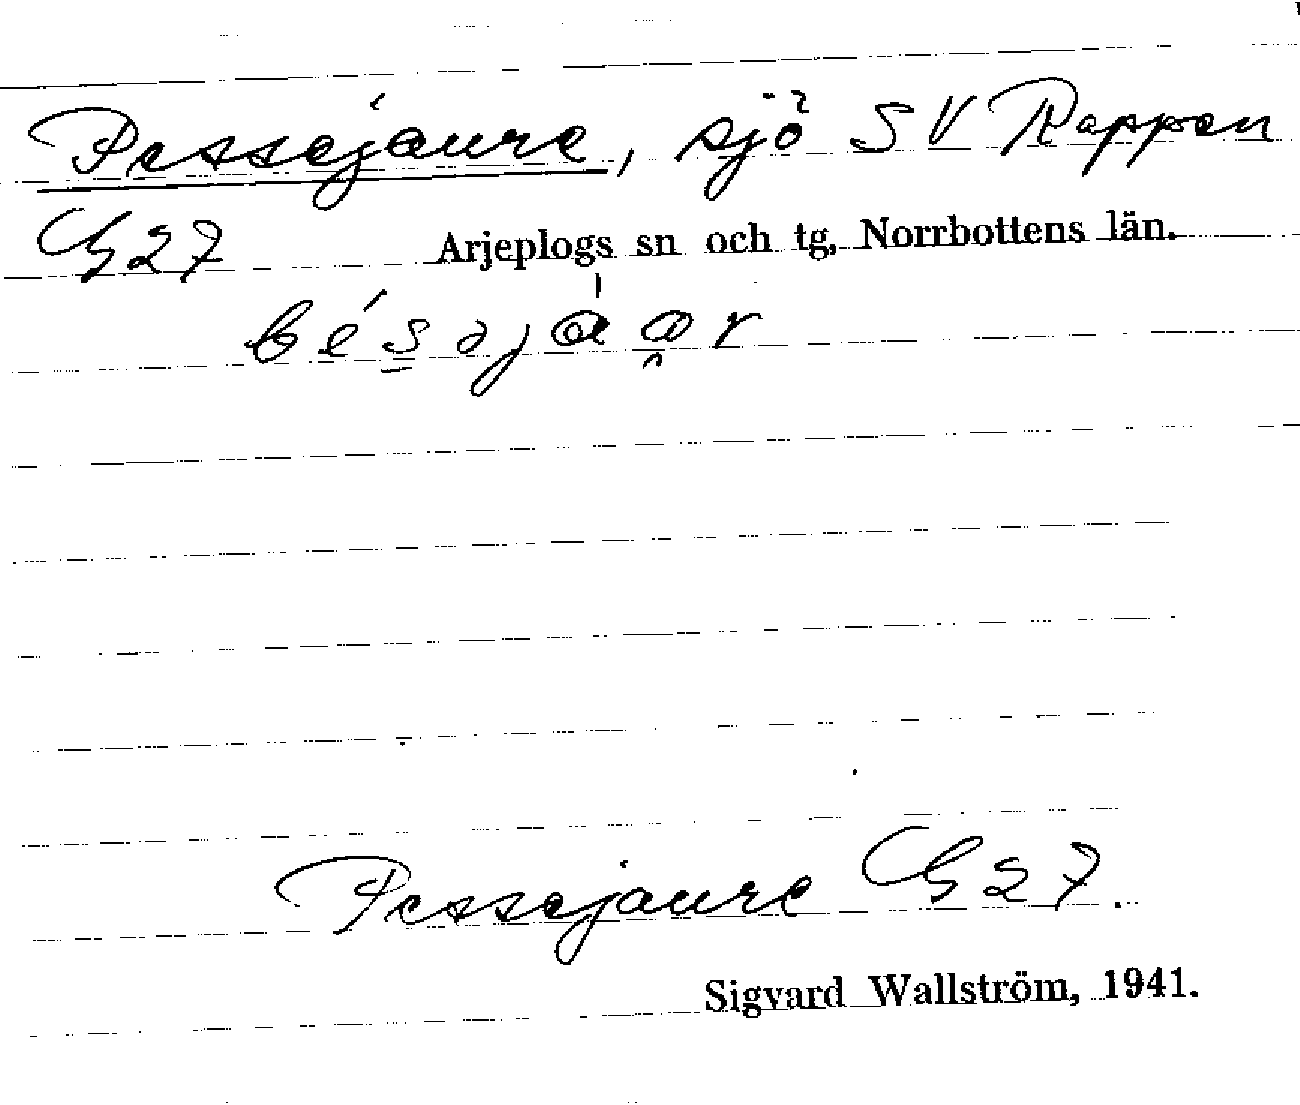 Pessejaure, sjö SV Rappen
G 27 Arjeplogs sn och tg, Norrbottens län.
Pessejaure G 27.
Sigvard Wallström, 1941.